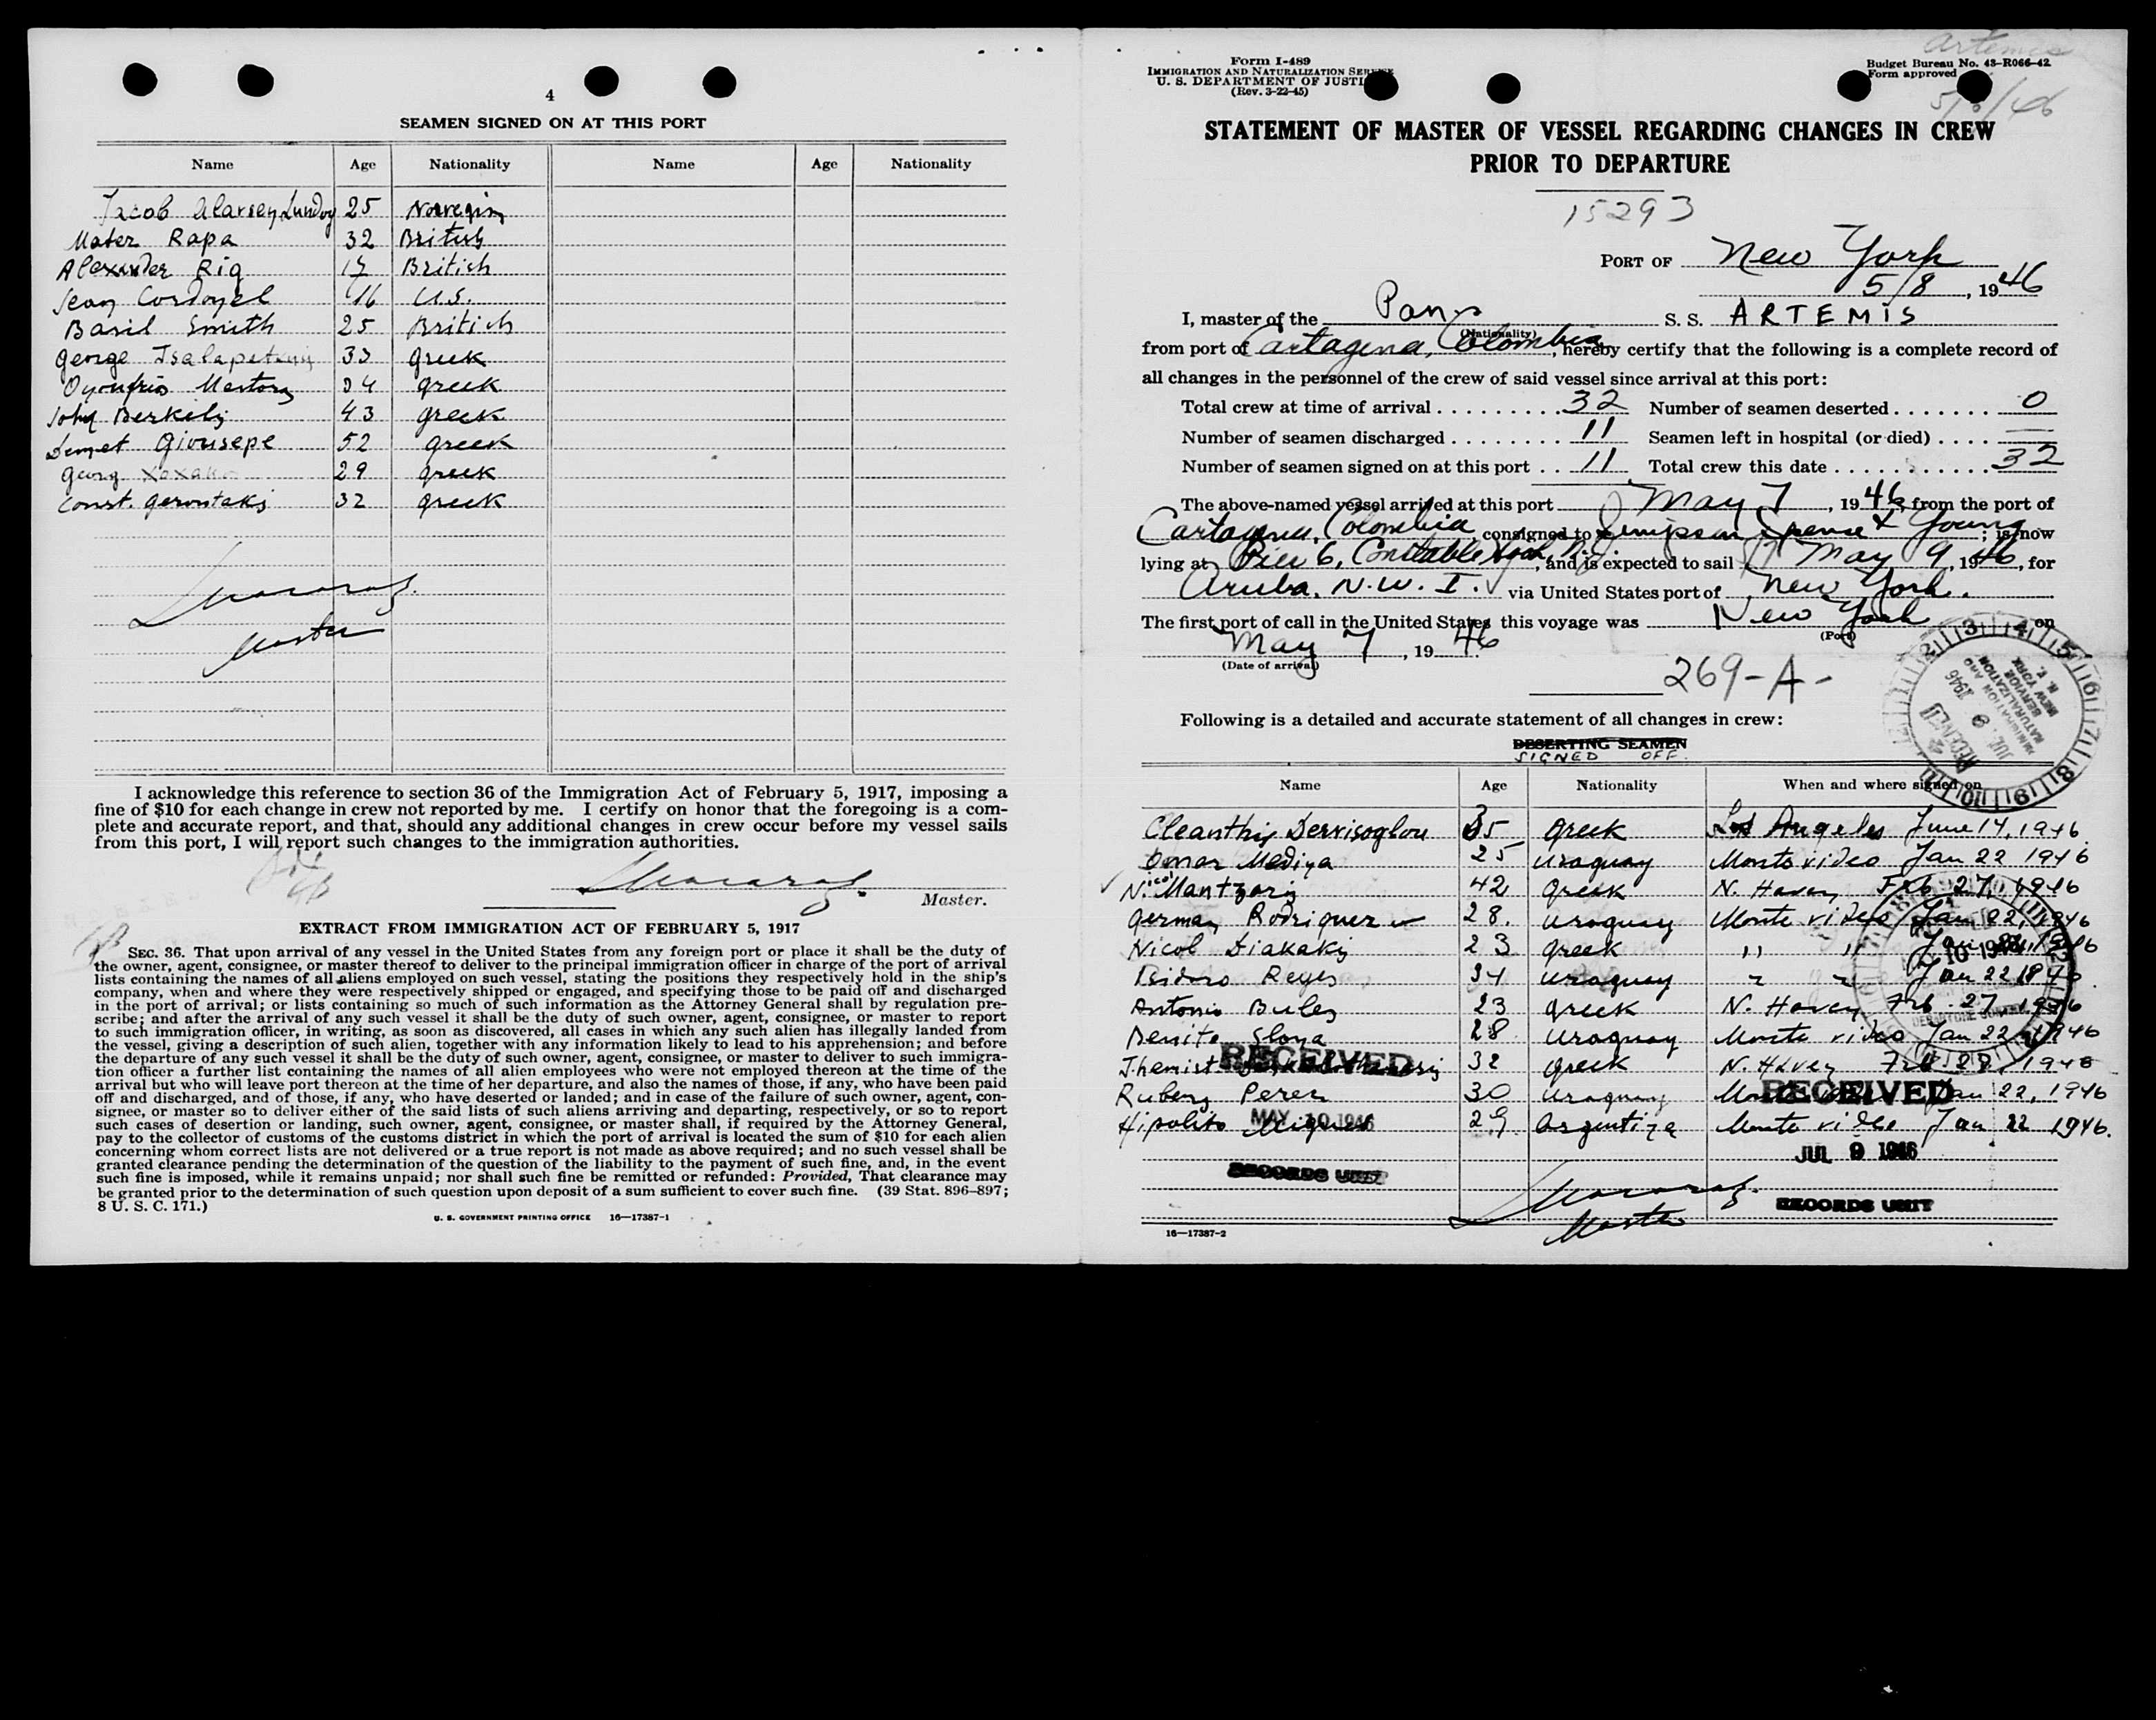 4
SEAMEN SIGNED ON AT THIS PORT
Name Age Nationality Name Age Nationality
Jacob 25 Norvegin
Mater Rapa 32 British
Alexander Rig British
Jean 16 U.S.
Basil Smith 25 British
George 33 greek
34 greek
John Berkelis 43 greek
Giousepe 52 greek
Georg 29 greek
Const. Gerontakis 32 greek
Master
I acknowledge this reference to section 36 of the Immigration Act of February 5, 1917, imposing a
fine of $10 for each change in crew not reported by me. I certify on honor that the foregoing is a com-
plete and accurate report, and that, should any additional changes in crew occur before my vessel sails
from this port, I will report such changes to the immigration authorities.
Master.
EXTRACT FROM IMMIGRATION ACT OF FEBRUARY 5, 1917
SEC. 36. That upon arrival of any vessel in the United States from any foreign port or place it shall be the duty of
the owner, agent, consignee, or master thereof to deliver to the principal immigration officer in charge of the port of arrival
lists containing the names of all aliens employed on such vessel, stating the positions they respectively hold in the ship's
company, when and where they were respectively shipped or engaged, and specifying those to be paid off and discharged
in the port of arrival; or lists containing so much of such information as the Attorney General shall by regulation pre-
scribe; and after the arrival of any such vessel it shall be the duty of such owner, agent, consignee, or master to report
to such immigration officer, in writing, as soon as discovered, all cases in which any such alien has illegally landed from
the vessel, giving a description of such alien, together with any information likely to lead to his apprehension; and before
the departure of any such vessel it shall be the duty of such owner, agent, consignee, or master to deliver to such immigra-
tion officer a further list containing the names of all alien employees who were not employed thereon at the time of the
arrival but who will leave port thereon at the time of her departure, and also the names of those, if any, who have been paid
off and discharged, and of those, if any, who have deserted or landed; and in case of the failure of such owner, agent, con-
signee, or master so to deliver either of the said lists of such aliens arriving and departing, respectively, or so to report
such cases of desertion or landing, such owner, agent, consignee, or master shall, if required by the Attorney General,
pay to the collector of customs of the customs district in which the port of arrival is located the sum of $10 for each alien
concerning whom correct lists are not delivered or a true report is not made as above required; and no such vessel shall be
granted clearance pending the determination of the question of the liability to the payment of such fine, and, in the event
such fine is imposed, while it remains unpaid; nor shall such fine be remitted or refunded: Provided, That clearance may
be granted prior to the determination of such question upon deposit of a sum sufficient to cover such fine. (39 Stat. 896–897;
8 U. S. C. 171.)
U. S. GOVERNMENT PRINTING OFFICE 16—17387-1
Artemis
Form I-489
IMMIGRATION AND NATURALIZATION
U. S. DEPARTMENT OF
(Rev. 3-22-45)
Budget Bureau No. 43-R066-42
Form approved
STATEMENT OF MASTER OF VESSEL REGARDING CHANGES IN CREW
PRIOR TO DEPARTURE
15293
PORT OF New York
5/8, 1946
I, master of the Pan. S. S. ARTEMIS
(Nationality)
from port of Cartagena, Colombia, hereby certify that the following is a complete record of
all changes in the personnel of the crew of said vessel since arrival at this port:
Total crew at time of arrival 32 Number of seamen deserted 0
Number of seamen discharged 11 Seamen left in hospital (or died) —
Number of seamen signed on at this port 11 Total crew this date 32
The above-named vessel arrived at this port May 7, 1946, from the port of
Cartagena, Colombia, consigned to Simpson Spence & Young; is now
lying at Pier 6, Constable Hook, N.J., and is expected to sail May 9, 1946, for
Aruba, N.W.I. via United States port of New York.
The first port of call in the United States this voyage was New York on
(Port)
May 7, 1946
(Date of arrival)
269-A-
Following is a detailed and accurate statement of all changes in crew:
DESERTING SEAMEN
SIGNED OFF.
Name Age Nationality When and where signed on
Cleanthis Dervisoglou 35 greek Los Angeles June 14, 1946
Omar Mediya 25 Uraguay Montevideo Jan 22 1946
Nicol Mantzaris 42 greek N. Haven Feb 27, 1946
German Rodriguez 28. Uraguay Montevideo Jan 22, 1946
Nicol Diakakis 23 greek " " Jan 1946
Isidoro Reyes 34 Uraguay " " Jan 22 1946
Antonis Bules 23 greek N. Haven Feb 27 1946
Benito 28 Uraguay Montevideo Jan 22 1946
Themist 32 greek N. Haven Feb 1946
Ruben Perez 30 Uraguay Jan 22, 1946
Hipolito 29 Argentina Montevideo Jan 22 1946.
RECEIVED
MAY 10 1946
RECORDS UNIT
RECEIVED
JUL 9 1946
RECORDS UNIT
Master
16—17387-2